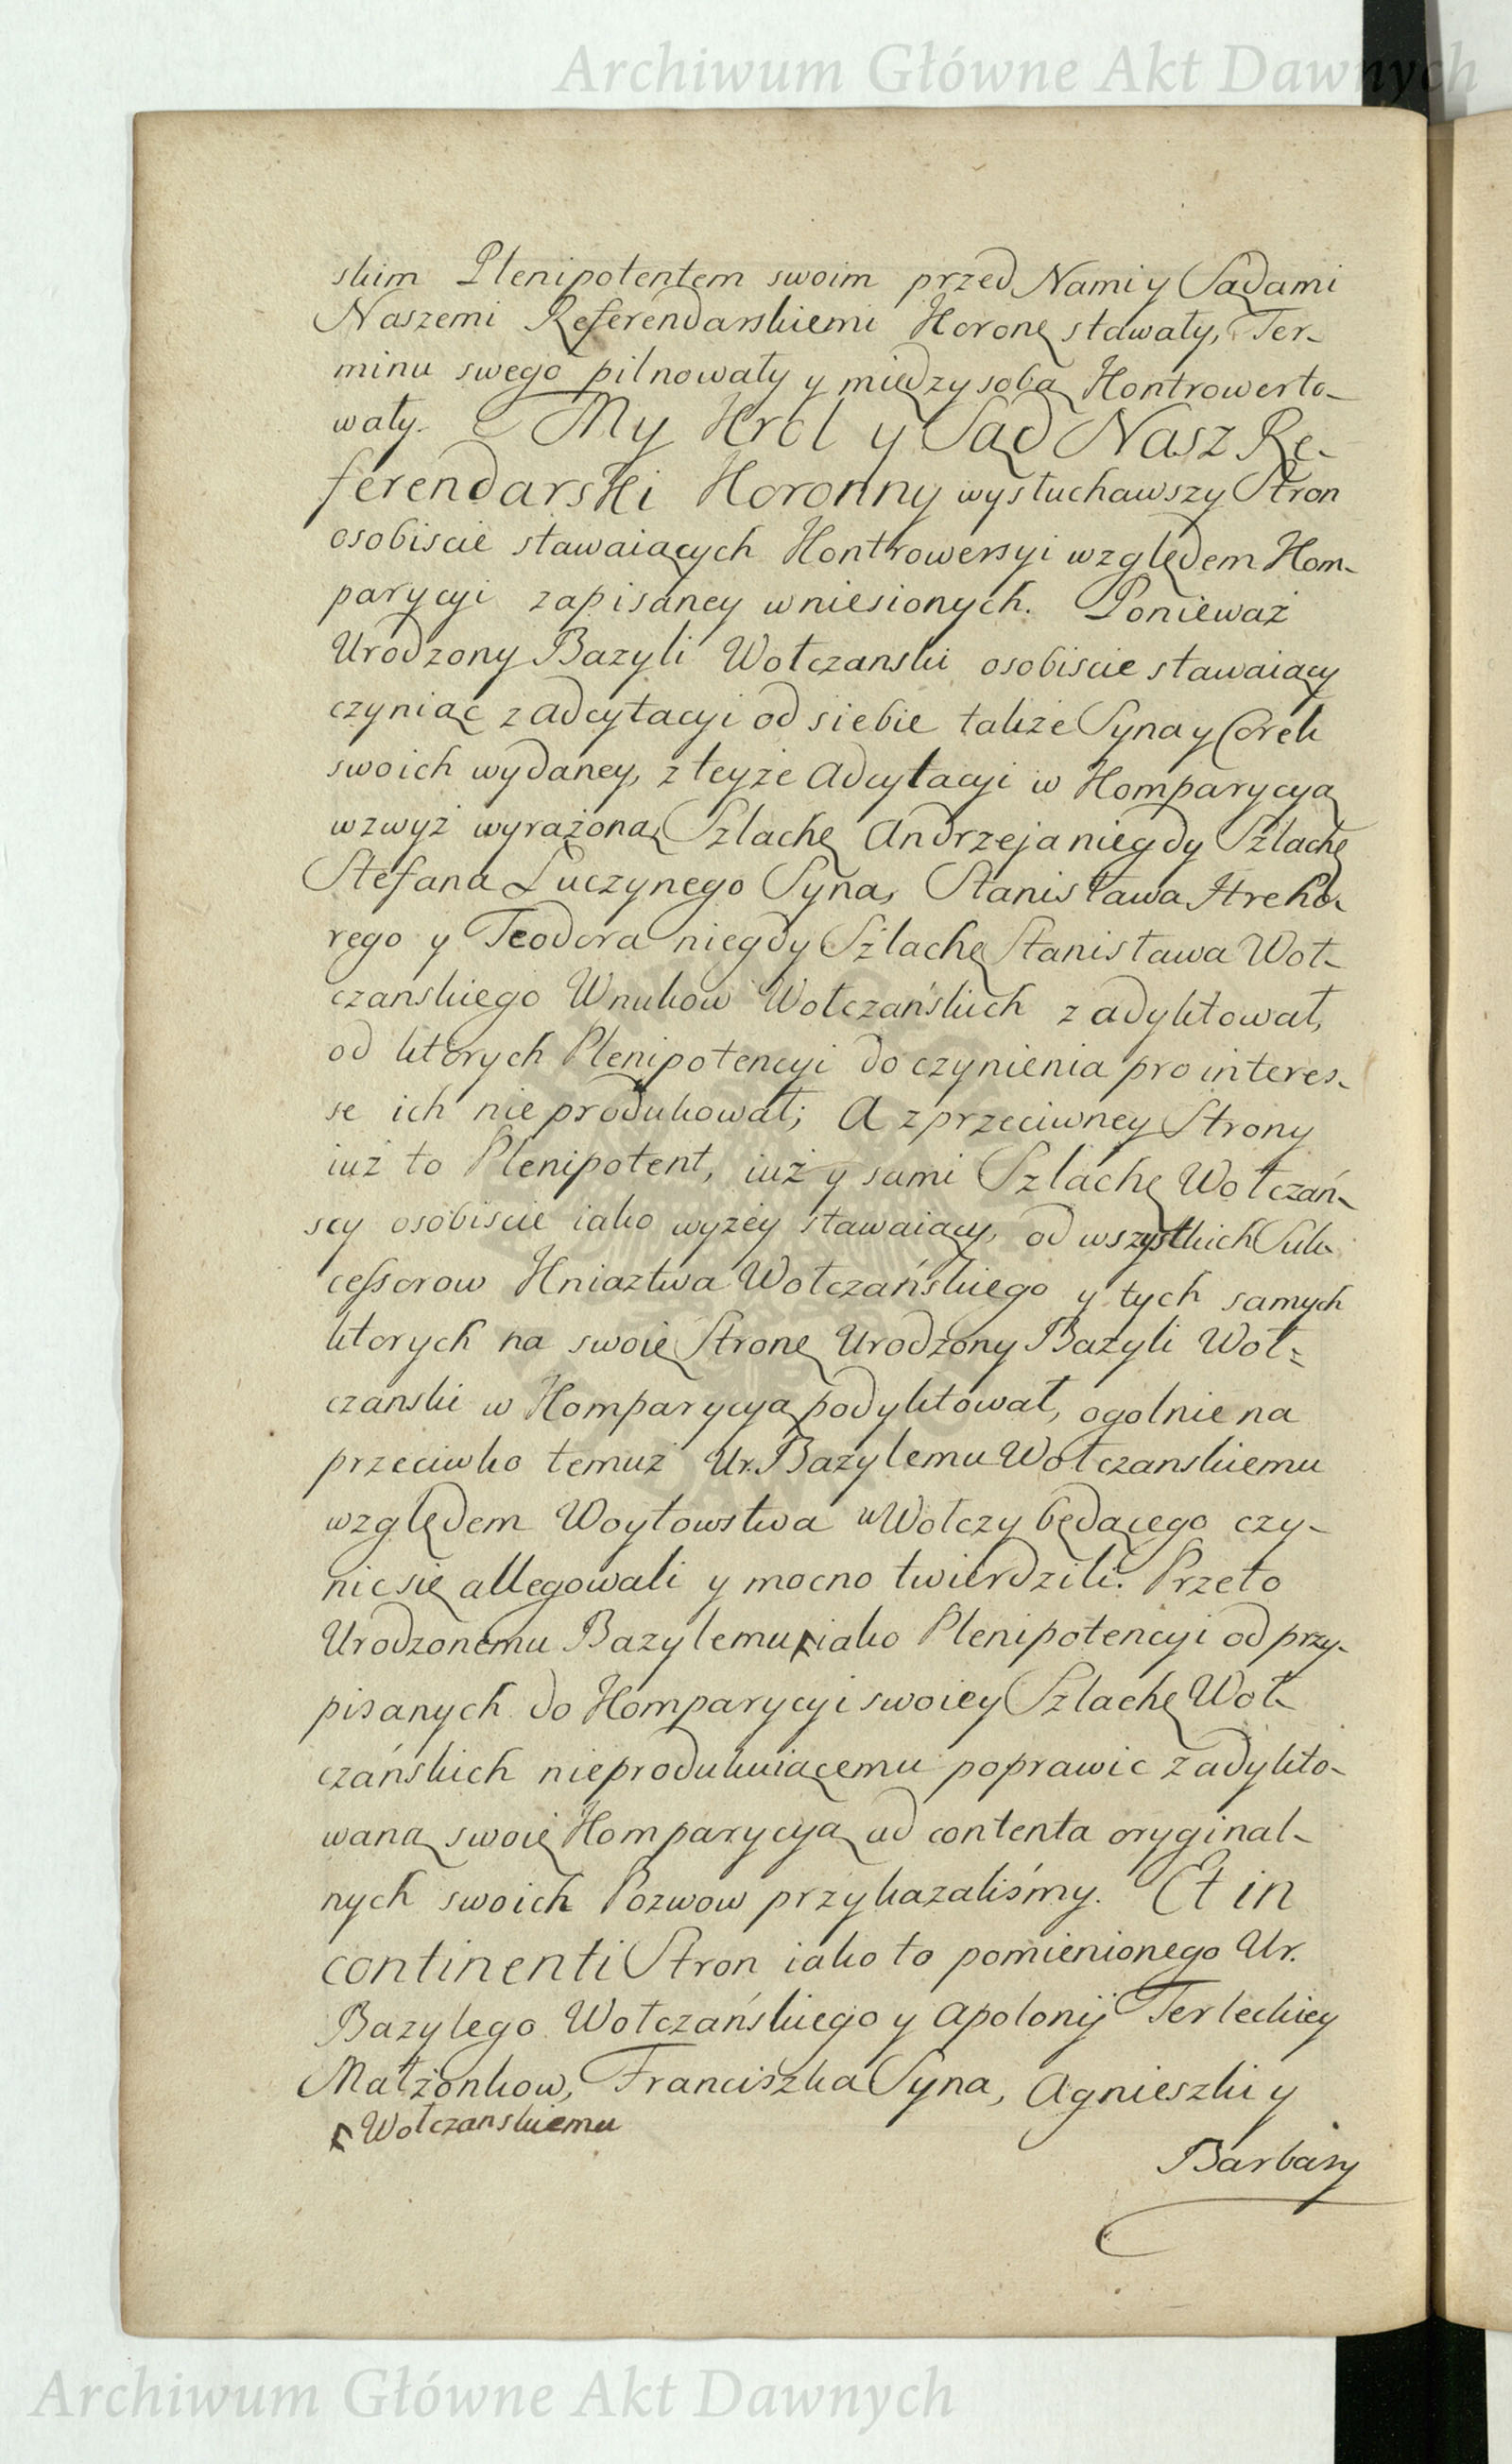 Archiwum Główne Akt Dawnych
skim Plenipotentem swoim przed Nami y Sądami
Naszemi Referendarskiemi Koronę stawały, Ter-
minu swego pilnowały y między sobą Kontrowerto-
wały. My Krol y Sąd Nasz Re-
ferendarski Koronny wysłuchawszy Stron
osobiscie stawaiących Kontrowersyi względem Kom-
parycyi zapisaney wniesionych. Ponieważ
Urodzony Bazyli Wołczanski osobiscie stawaiący
czyniąc z adcytacyi od siebie także Syna y Corek
swoich wydaney, z teyże Adcytacyi w Komparycyą
wzwyż wyrażoną Szlachę Andrzeja niegdy Szlachę
Stefana Łuczynego Syna, Stanisława Ktreko-
rego y Teodora niegdy Szlachę Stanisława Woł-
czanskiego Wnukow Wołczańskich zadyktował,
od ktorych Plenipotencyi do czynienia pro interes-
se ich nie produkował; A z przeciwney Strony
iuż to Plenipotent, iuż y sami Szlachę Wołczań-
scy osobiscie iako wyżey stawaiący, od wszystkich Suk-
cessorow Kniaztwa Wołczańskiego y tych samych
ktorych na swoię Stronę Urodzony Bazyli Woł-
czanski w Komparycyą podyktował, ogolnie na
przeciwko temuż Ur. Bazylemu Wołczanskiemu
względem Woytowstwa w Wołczy będącego czy-
nic się allegowali y mocno twierdzili. Przeto
Urodzonemu Bazylemu iako Plenipotencyi od przy-
pisanych do Komparycyi swoiey Szlachę Woł-
czańskich nieprodukuiącemu poprawic zadykto-
waną swoię Komparycyą ad contenta oryginal-
nych swoich Pozwow przykazaliśmy. Et in
continenti Stron iako to pomienionego Ur.
Bazylego Wołczańskiego y Apolonij Terleckiey
Małżonkow, Franciszka Syna, Agnieszki y
Wołczanskiemu
Barbary
Archiwum Główne Akt Dawnych